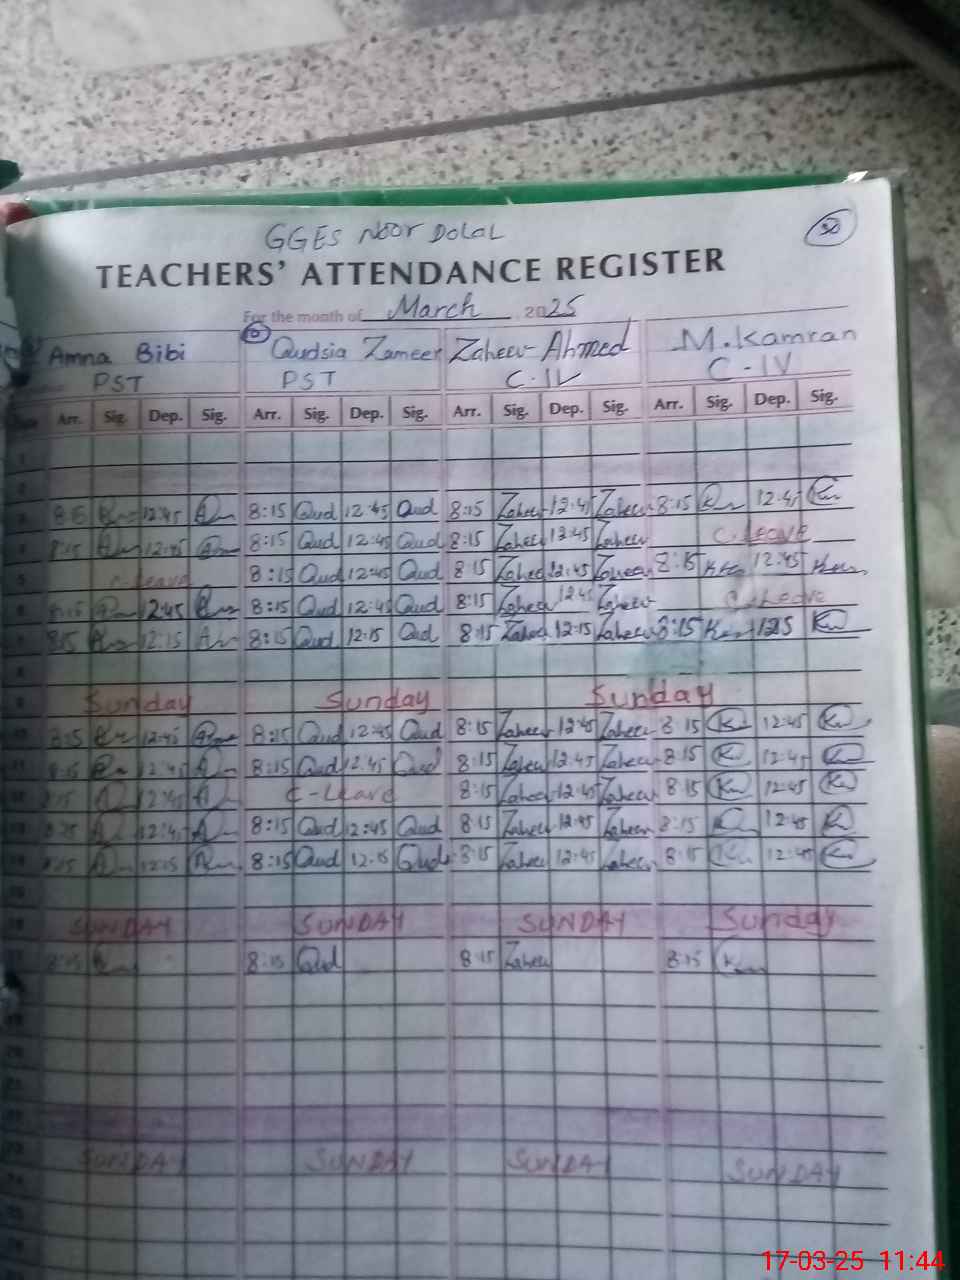 GGES Noor Dolal
30
TEACHERS' ATTENDANCE REGISTER
For the month of March 2025
Amna Bibi Qudsia Zameer Zaheer Ahmed M.Kamran
PST PST C-IV C-IV
Arr. Sig. Dep. Sig. Arr. Sig. Dep. Sig. Arr. Sig. Dep. Sig. Arr. Sig. Dep. Sig.
1
2
12:45 8:15 Qud 12:45 Qud 8:15 Zaheer 12:45 Zaheer 8:15 12:45
8:15 12:45 8:15 Qud 12:45 Qud 8:15 Zaheer 12:45 Zaheer C.Leave
5 C.Leave 8:15 Qud 12:45 Qud 8:15 Zaheer 12:45 Zaheer 8:15 12:45
8:15 12:45 8:15 Qud 12:45 Qud 8:15 Zaheer 12:45 Zaheer C.Leave
8:15 12:15 8:15 Qud 12:15 Qud 8:15 Zaheer 12:15 Zaheer 8:15
8
9 Sunday Sunday Sunday
12:45 8:15 Qud 12:45 Qud 8:15 Zaheer 12:45 Zaheer 8:15 12:45
8:15 12:45 8:15 Qud 12:45 Qud 8:15 Zaheer 12:45 Zaheer 8:15 12:45
12:45 C-Leave 8:15 Zaheer 12:45 Zaheer 8:15 12:45
12:45 8:15 Qud 12:45 Qud 8:15 Zaheer 12:45 Zaheer 8:15 12:45
8:15 12:15 8:15 Qud 12:15 Qud 8:15 Zaheer 12:45 Zaheer 8:15 12:45
SUNDAY SUNDAY SUNDAY Sunday
8:15 8:15 Qud 8:15 Zaheer 8:15
SUNDAY SUNDAY SUNDAY SUNDAY
17-03-25 11:44